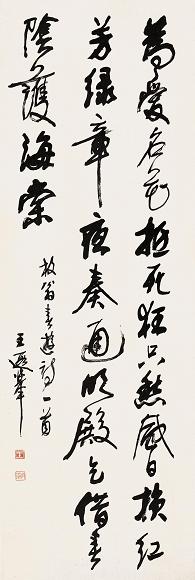 為愛名花抵死狂只愁風日損紅
芳綠章夜奏通明殿乞借春
陰護海棠
放翁春遊詩一首
王遐舉